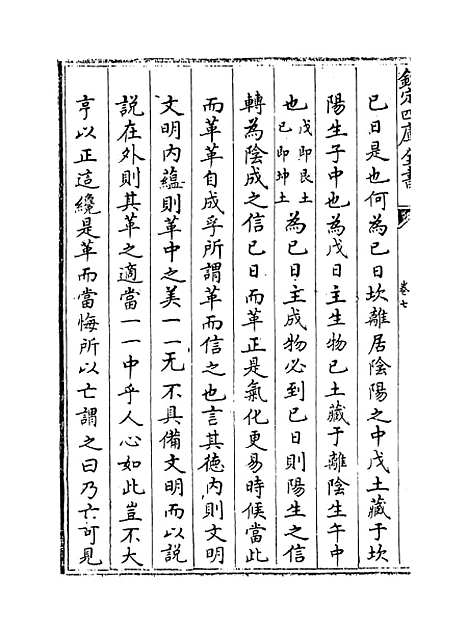 欽定四庫全書
卷七
已日是也何為已日坎離居陰陽之中戊土藏于坎
陽生子中也為戊日主生物已土藏于離陰生午中
也戊即艮土已即坤土為已日主成物必到已日則陽生之信
轉為陰成之信已日而革正是氣化更易時候當此
而革革自成孚所謂革而信之也言其德內則文明
文明內蘊則革中之美一一无不具備文明而以說
說在外則其革之適當一一中乎人心如此豈不大
亨以正這纔是革而當悔所以亡謂之曰乃亡可見